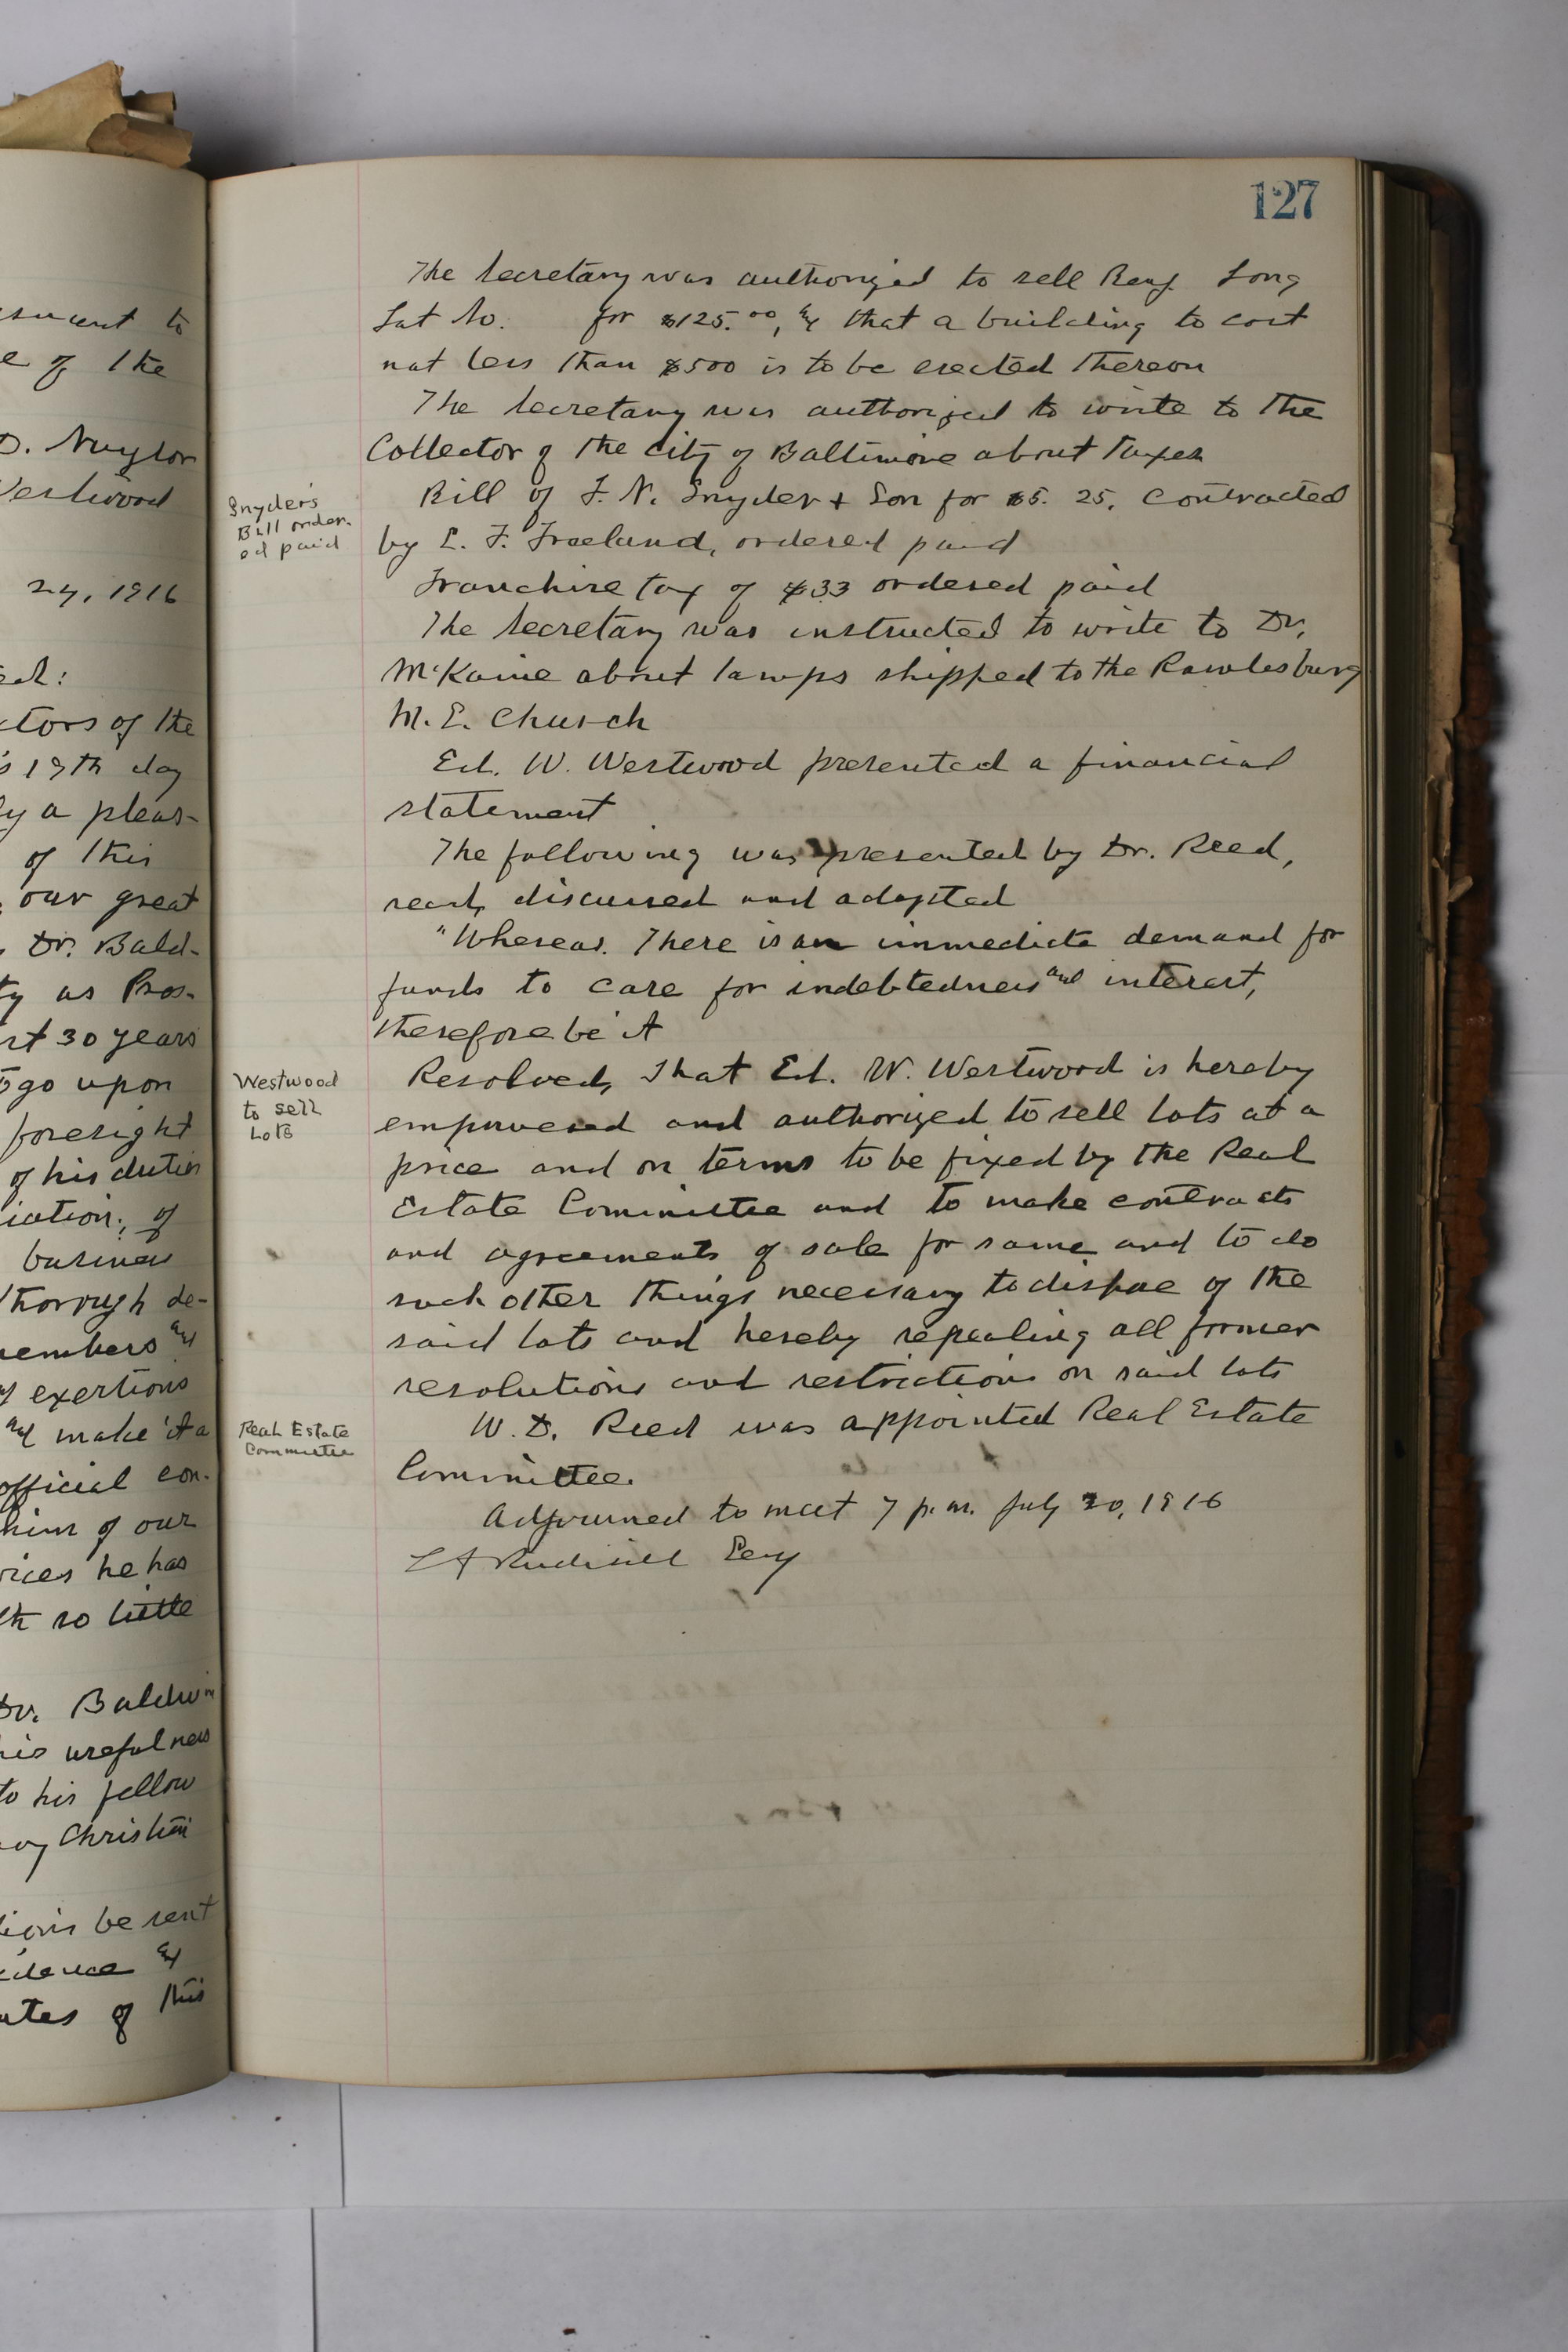 suant to
e of the
D. Naylor
Westwood
24, 1916
ed:
ctors of the
s 19th day
ly a pleas-
of this
our great
Dr. Bald-
ty as Pres-
st 30 years
to go upon
foresight
of his duties
iation; of
business
thorough de-
members and
exertions
and make it a
official con-
him of our
vices he has
so little
Dr. Baldwin
his usefulness
to his fellow
Christian
tions be sent
idence &
utes of this
127
The Secretary was authorized to sell Benj. Long
Lot No. for $125.00, & that a building to cost
not less than $500 is to be erected thereon
The Secretary was authorized to write to the
Collector of the city of Baltimore about Taxes
Snyder's
Bill order-
ed paid
Bill of F. N. Snyder + Son for $5.25, contracted
by L. F. Freeland, ordered paid
Franchise tax of $33 ordered paid
The Secretary was instructed to write to Dr.
McKaine about lamps shipped to the Rawlesburg
M. E. Church
Ed. W. Westwood presented a financial
statement
The following was presented by Dr. Reed,
read, discussed and adopted
"Whereas. There is an immediate demand for
funds to care for indebtedness and interest,
therefore be it
Westwood
to sell
Lots
Resolved, That Ed. W. Westwood is hereby
empowered and authorized to sell lots at a
price and on terms to be fixed by the Real
Estate Committee and to make contracts
and agreements of sale for same and to do
such other things necessary to dispose of the
said lots and hereby repealing all former
resolutions and restrictions on said lots
Real Estate
Committee
W. D. Reed was appointed Real Estate
Committee.
Adjourned to meet 7 p.m. July 20, 1916
Secy